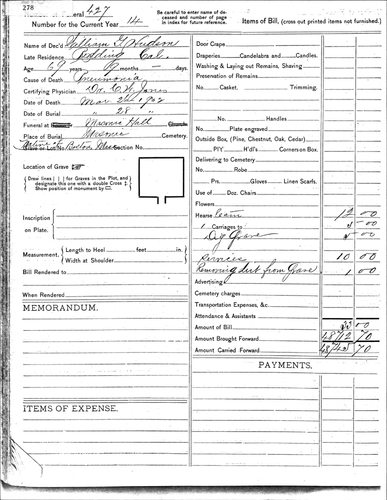 278
Number of Funeral 427
Number for the Current Year 14
Be careful to enter name of deceased and number of page in index for future reference.
Items of Bill, (cross out printed items not furnished.)
Name of Dec'd William G. Hudson
Late Residence Redding Cal.
Age 69 years 9 months days.
Cause of Death Pneumonia
Certifying Physician Dr. C. W. Jones
Date of Death Mar 24 1902
Date of Burial " 28 "
Funeral at Masonic Hall
Place of Burial Masonic Cemetery.
Grave or Lot No. Section No.
Boston Mass
Location of Grave
Draw lines ( | ) for Graves in the Plot, and designate this one with a double Cross ‡ Show position of monument by
Inscription on Plate.
Measurement, Length to Heel feet in.
Width at Shoulder "
Bill Rendered to
When Rendered
MEMORANDUM.
ITEMS OF EXPENSE.
Door Crape
Draperies Candelabra and Candles.
Washing & Laying out Remains, Shaving
Preservation of Remains
No. Casket. Trimming.
No. Handles
No. Plate engraved
Outside Box, (Pine, Chestnut, Oak, Cedar)
P|Y H'd's Corners on Box.
Delivering to Cemetery
No. Robe
Prs. Gloves Linen Scarfs.
Use of Doz. Chairs
Flowers
Hearse team 12 00
1 Carriages to 5 00
Dig Grave 5 00
Services 10 00
Removing dirt from Grave 1 00
Advertising
Cemetery charges
Transportation Expenses, &c.
Attendance & Assistants
Amount of Bill 33 00
Amount Brought Forward 70
Amount Carried Forward 70
PAYMENTS.